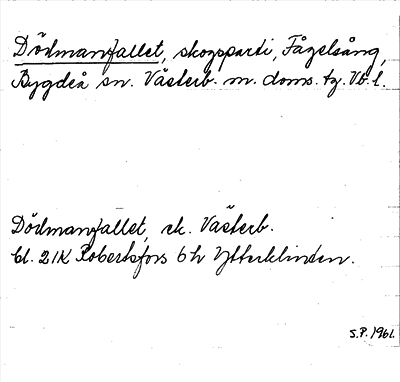 Dödmansfallet, skogsparti, Fågelsång,
Bygdeå sn. Västerb. m. doms. tg. Vb. l.
Dödmanfallet, ek. Västerb.
bl. 21K Robertsfors 6 h Ytterklinten.
S.P. 1961.